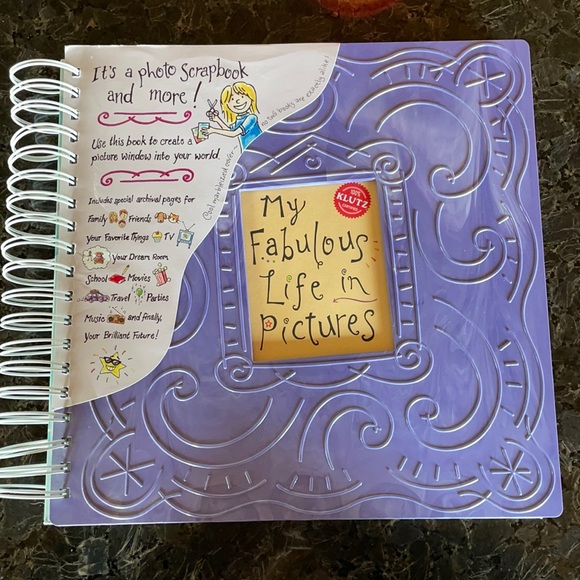 It's a photo Scrapbook
and more!
Use this book to create a
picture window into your world.
Includes special archival pages for
Family Friends
your Favorite Things TV
Your Dream Room
School Movies
Travel Parties
Music and finally,
Your Brilliant Future!
Cool marbleized cover ~ no two books are exactly alike!
My
Fabulous
Life in
Pictures
100%
KLUTZ
CERTIFIED